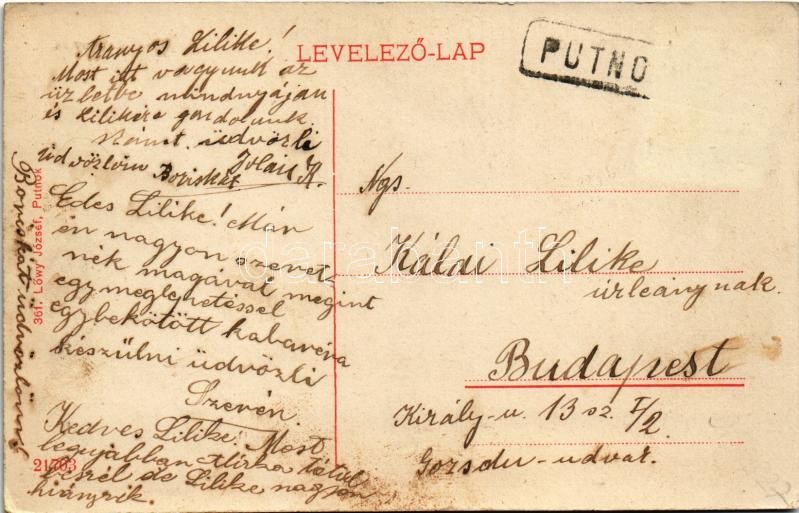 LEVELEZŐ-LAP
PUTNO
Aranyos Lilike!
Most itt vagyunk az
üzletbe mindnyájan
és Lilikére gondolunk
üdvözli
Üdvözlöm Boriskát Jolán K.
Edes Lilike! Már
én nagyon szeret
nék magával megint
egy meglepetéssel
egybekötött kabaréra
készülni üdvözli
Szerén.
Kedves Lilike! Most
legujabban Mirka
beszél de Lilike nagyon
hiányzik.
Boriskát üdvözlöm
361. Lőwy József, Putnok
21703
Ngs.
Kálai Lilike
úrleánynak.
Budapest
Király-u. 13 sz. I/2
Gozsdu-udvar.
darabanth